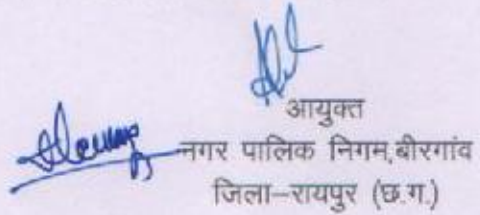 आयुक्त
नगर पालिक निगम,बीरगांव
जिला–रायपुर (छ.ग.)